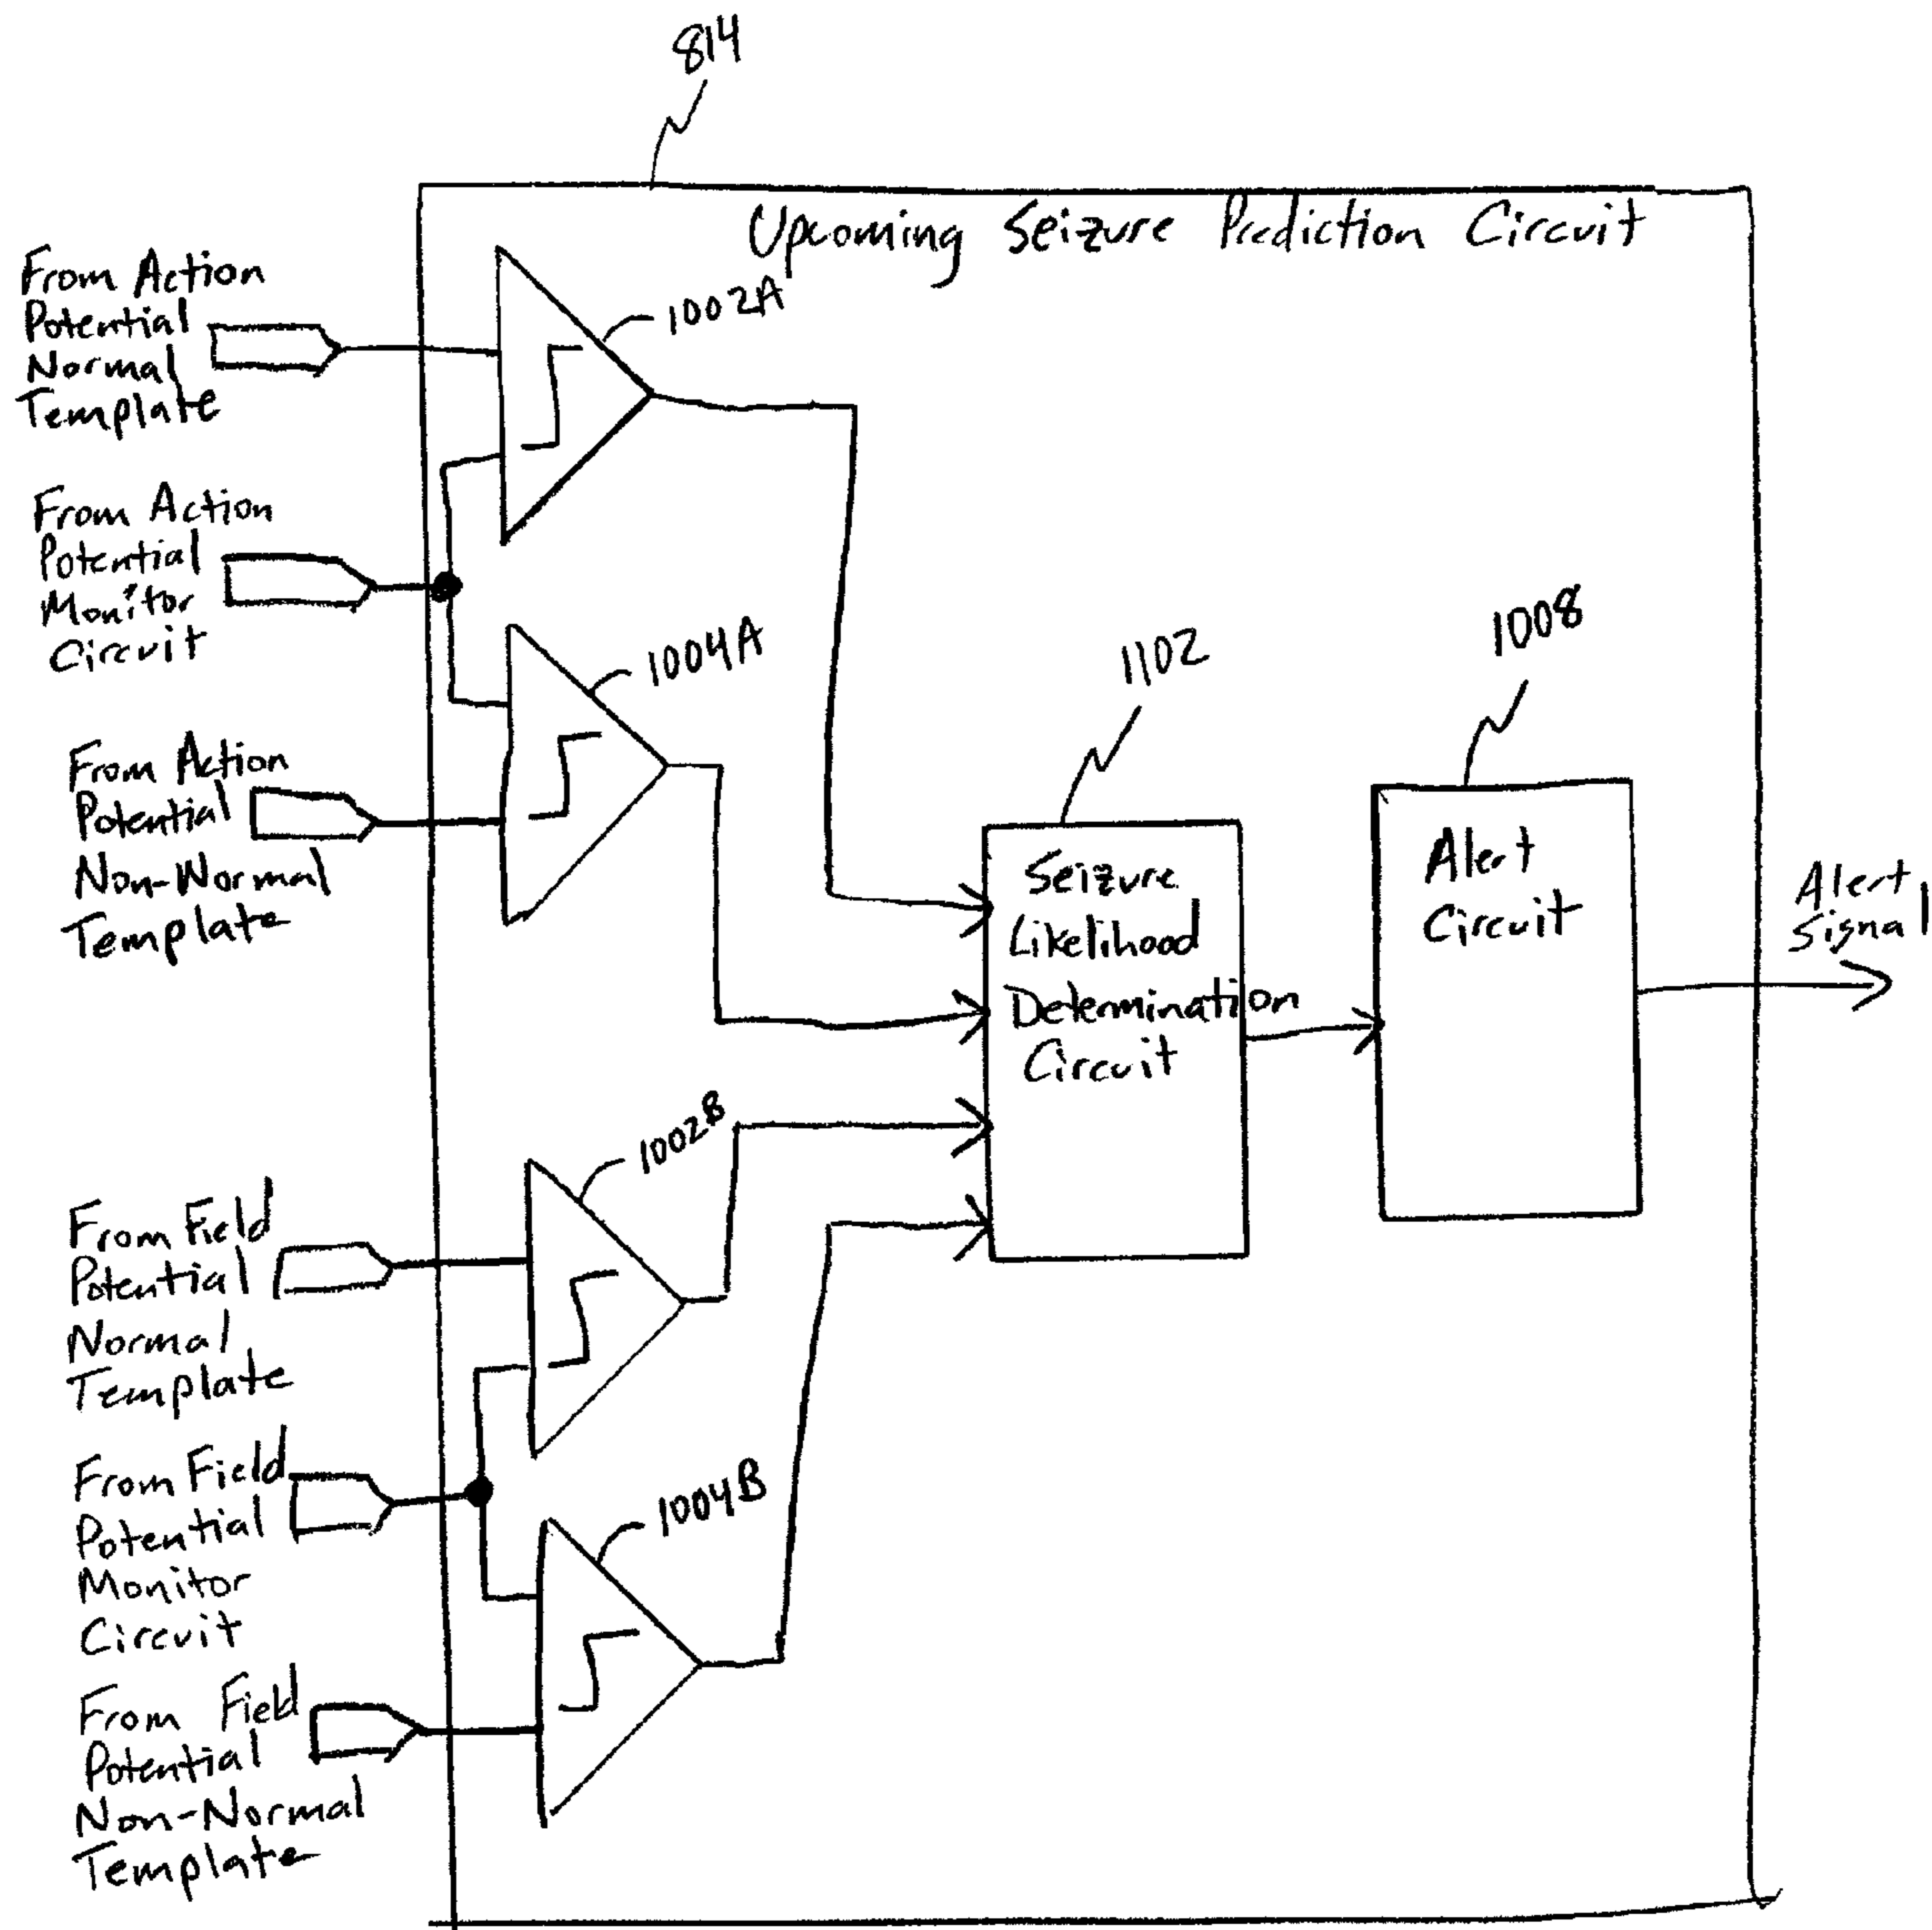 814
Upcoming Seizure Prediction Circuit
From Action
Potential
Normal
Template
1002A
From Action
Potential
Monitor
Circuit
1004A
From Action
Potential
Non-Normal
Template
1102
1008
Seizure
Likelihood
Determination
Circuit
Alert
Circuit
Alert
Signal
1002B
From Field
Potential
Normal
Template
From Field
Potential
Monitor
Circuit
1004B
From Field
Potential
Non-Normal
Template